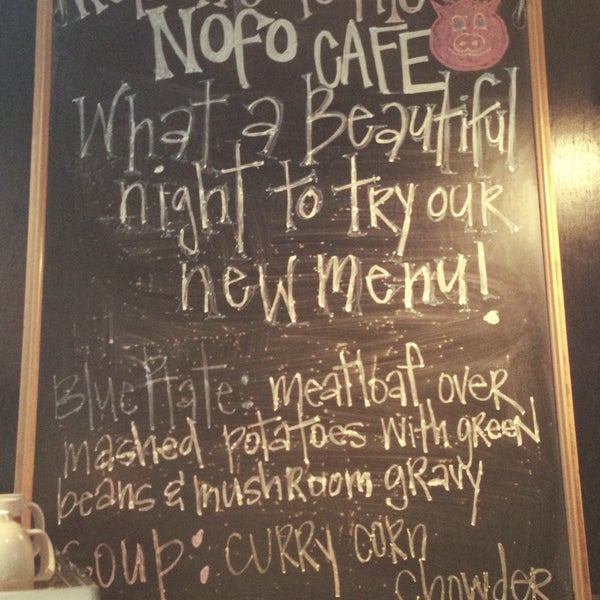 to the
NOFO CAFE
What a Beautiful
night to try our
new menu!
Blue Plate: meatloaf over
mashed potatoes with green
beans & mushroom gravy
Soup: curry corn
chowder